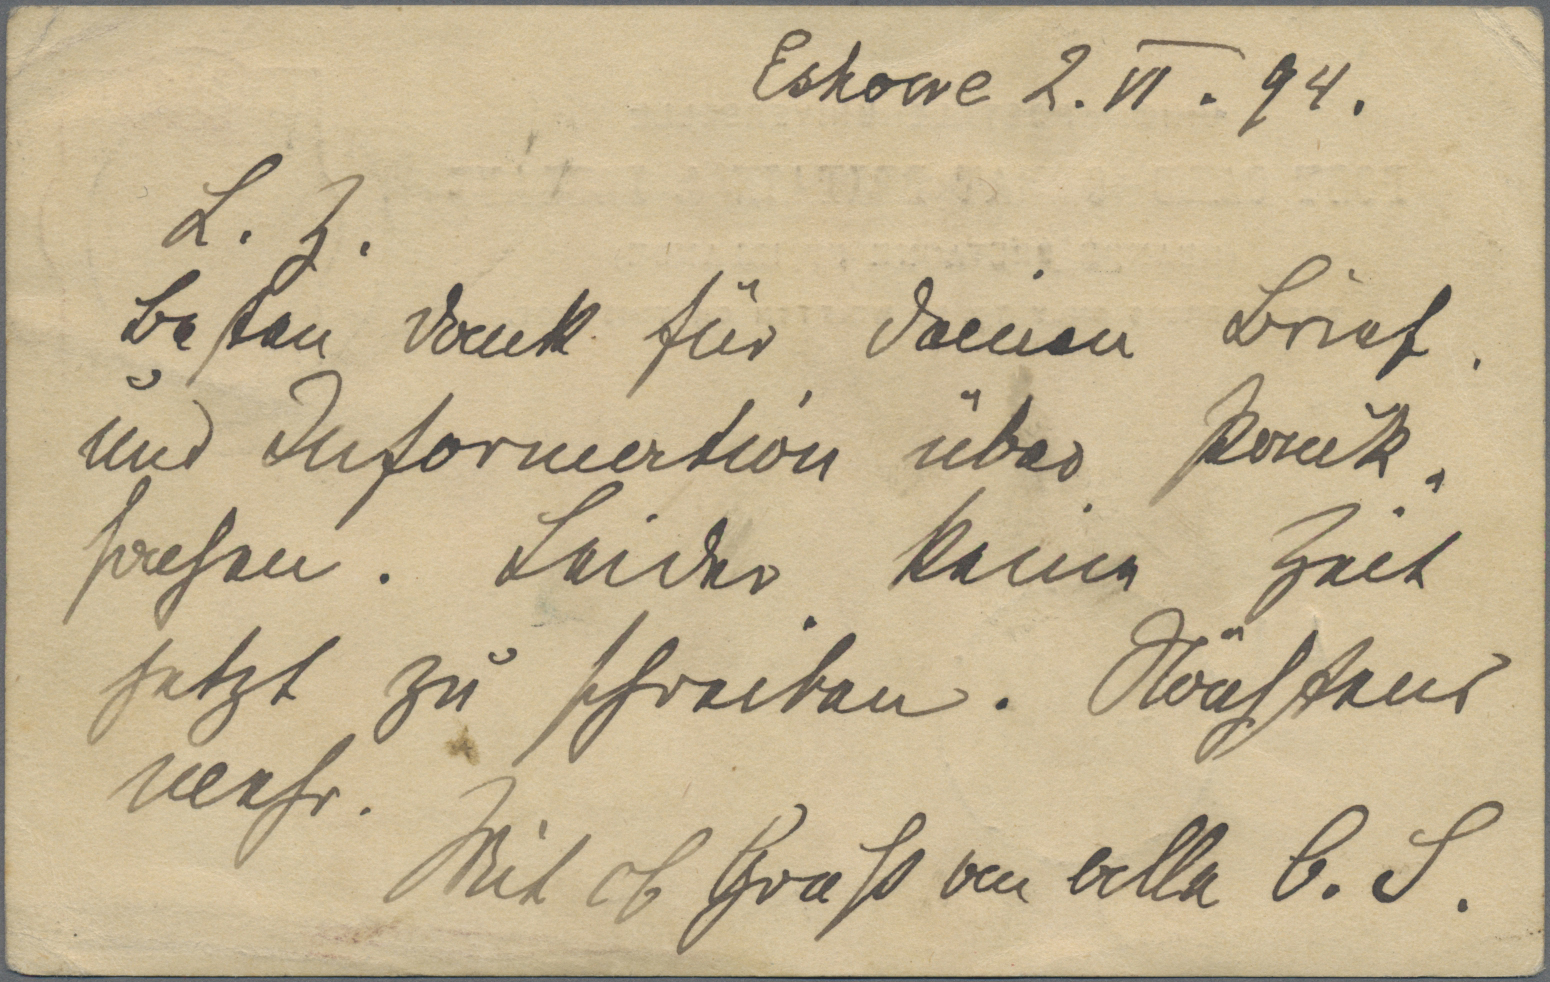 Eshowe 2. VI. 94.
L. Z.
besten Dank für deinen Brief
und Information über Bank-
sachen. Leider keine Zeit
jetzt zu schreiben. Nächstens
mehr.
Mit Gruß an alle C. S.